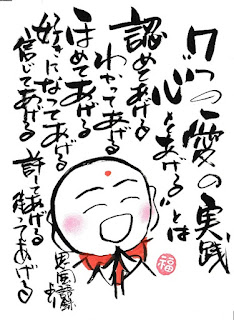 7つの愛の実践
“心をあげる”とは
認めてあげる
わかってあげる
ほめてあげる
好きになってあげる
信じてあげる
許してあげる
待ってあげる
福